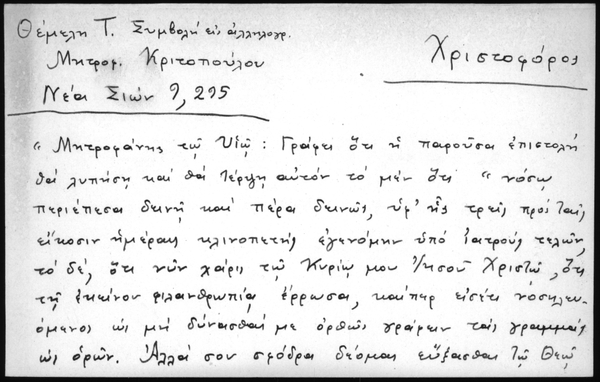 Θέμελη Τ. Συμβολή εις αλληλογρ.
Μητροφ. Κριτοπούλου
Νέα Σιών 9, 295
Χριστοφόρος
"Μητροφάνης τῷ Υἱῷ : Γράφει ὅτι ἡ παροῦσα ἐπιστολή
θά λυπήσῃ καί θά τέρψῃ αὐτόν τό μέν ὅτι "νόσῳ
περιέπεσα δεινῇ καί πέρα δεινῶς, ὑφ' ἧς τρεῖς πρός ταῖς
εἴκοσιν ἡμέρας κλινοπετής ἐγενόμην ὑπό ἰατρούς τελῶν,
τό δέ, ὅτι νῦν χάρις τῷ Κυρίῳ μου Ἰησοῦ Χριστῷ, ὅτι
τῇ ἐκείνου φιλανθρωπίᾳ ἔρρωσαι, καίπερ εἰσέτι νοσηλευ-
όμενος ὡς μή δύνασθαί με ὀρθῶς γράφειν τάς γραμμάς
ὡς ὁρῶν. Ἀλλά σου σφόδρα δέομαι εὔξασθαι τῷ Θεῷ